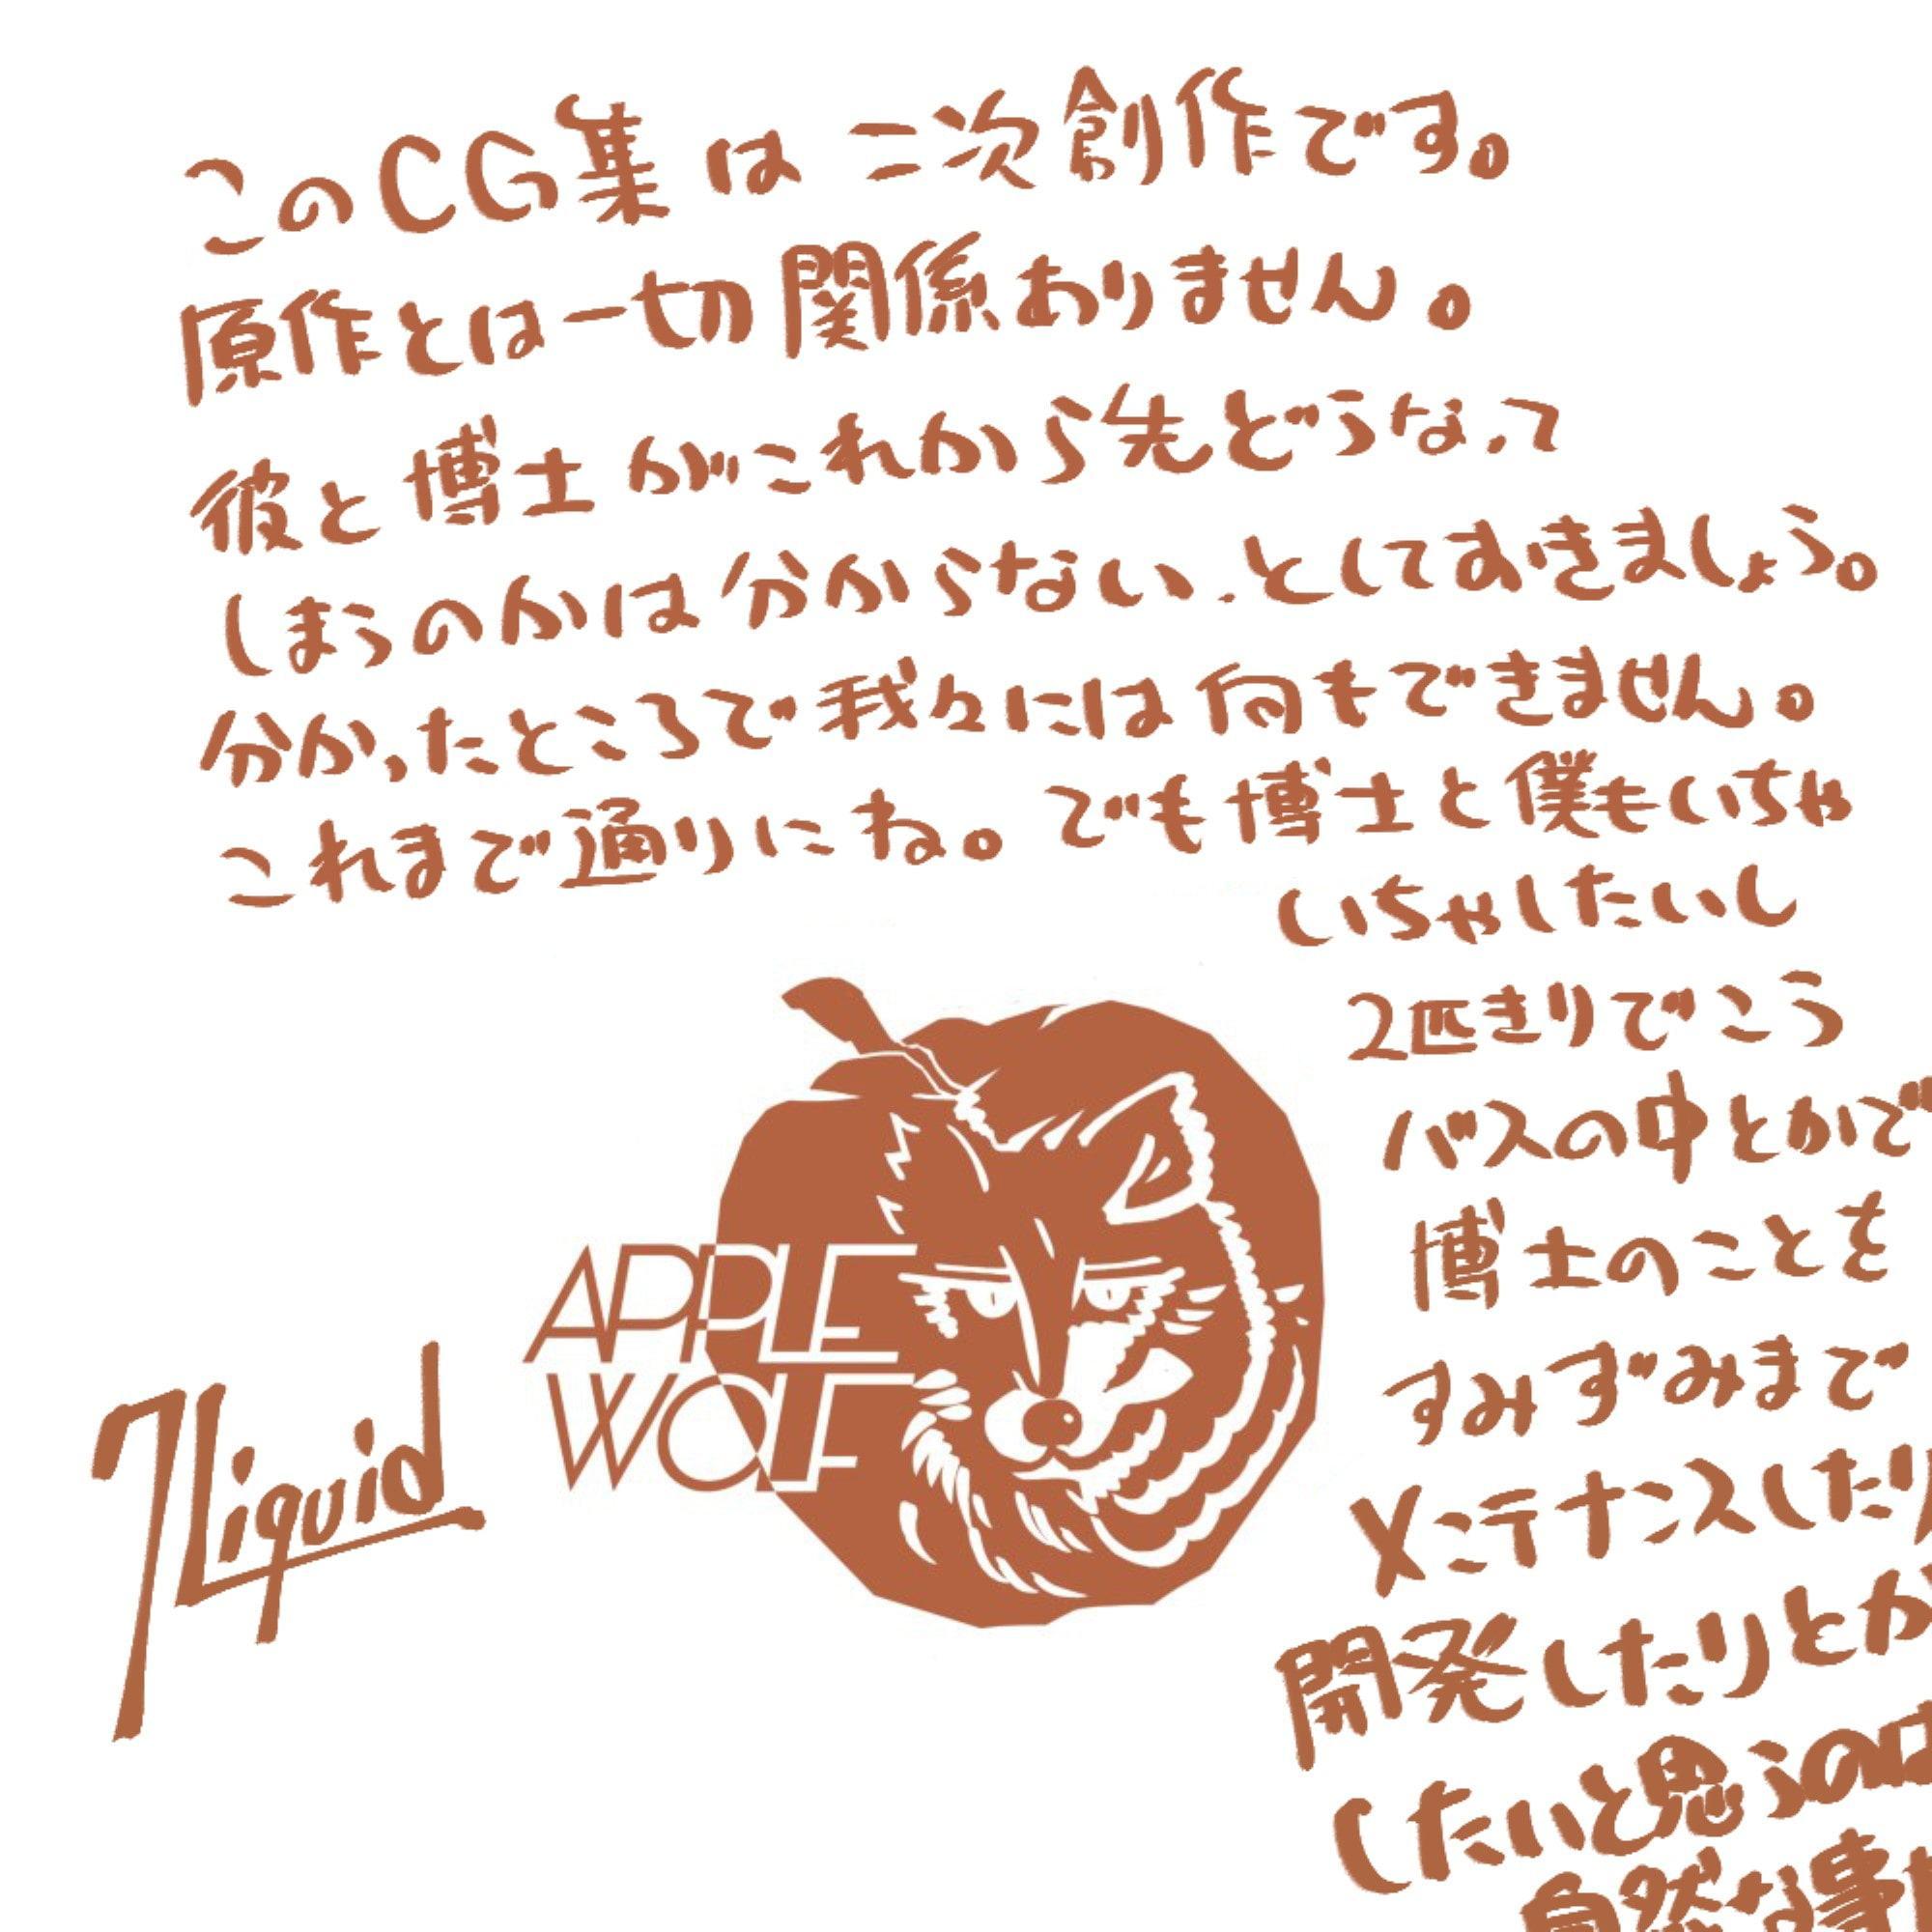 このCG集は二次創作です。
原作とは一切関係ありません。
彼と博士がこれから先どうなって
しまうのかは分からない.としておきましょう。
分かったところで我々には何もできません。
これまで通りにね。でも博士と僕もいちゃ
いちゃしたいし
2匹きりでこう
バスの中とかで
博士のことを
すみずみまで
メンテナンスしたり
開発したりとか
したいと思うのは
自然な事
APPLE
WOLF
7Liquid